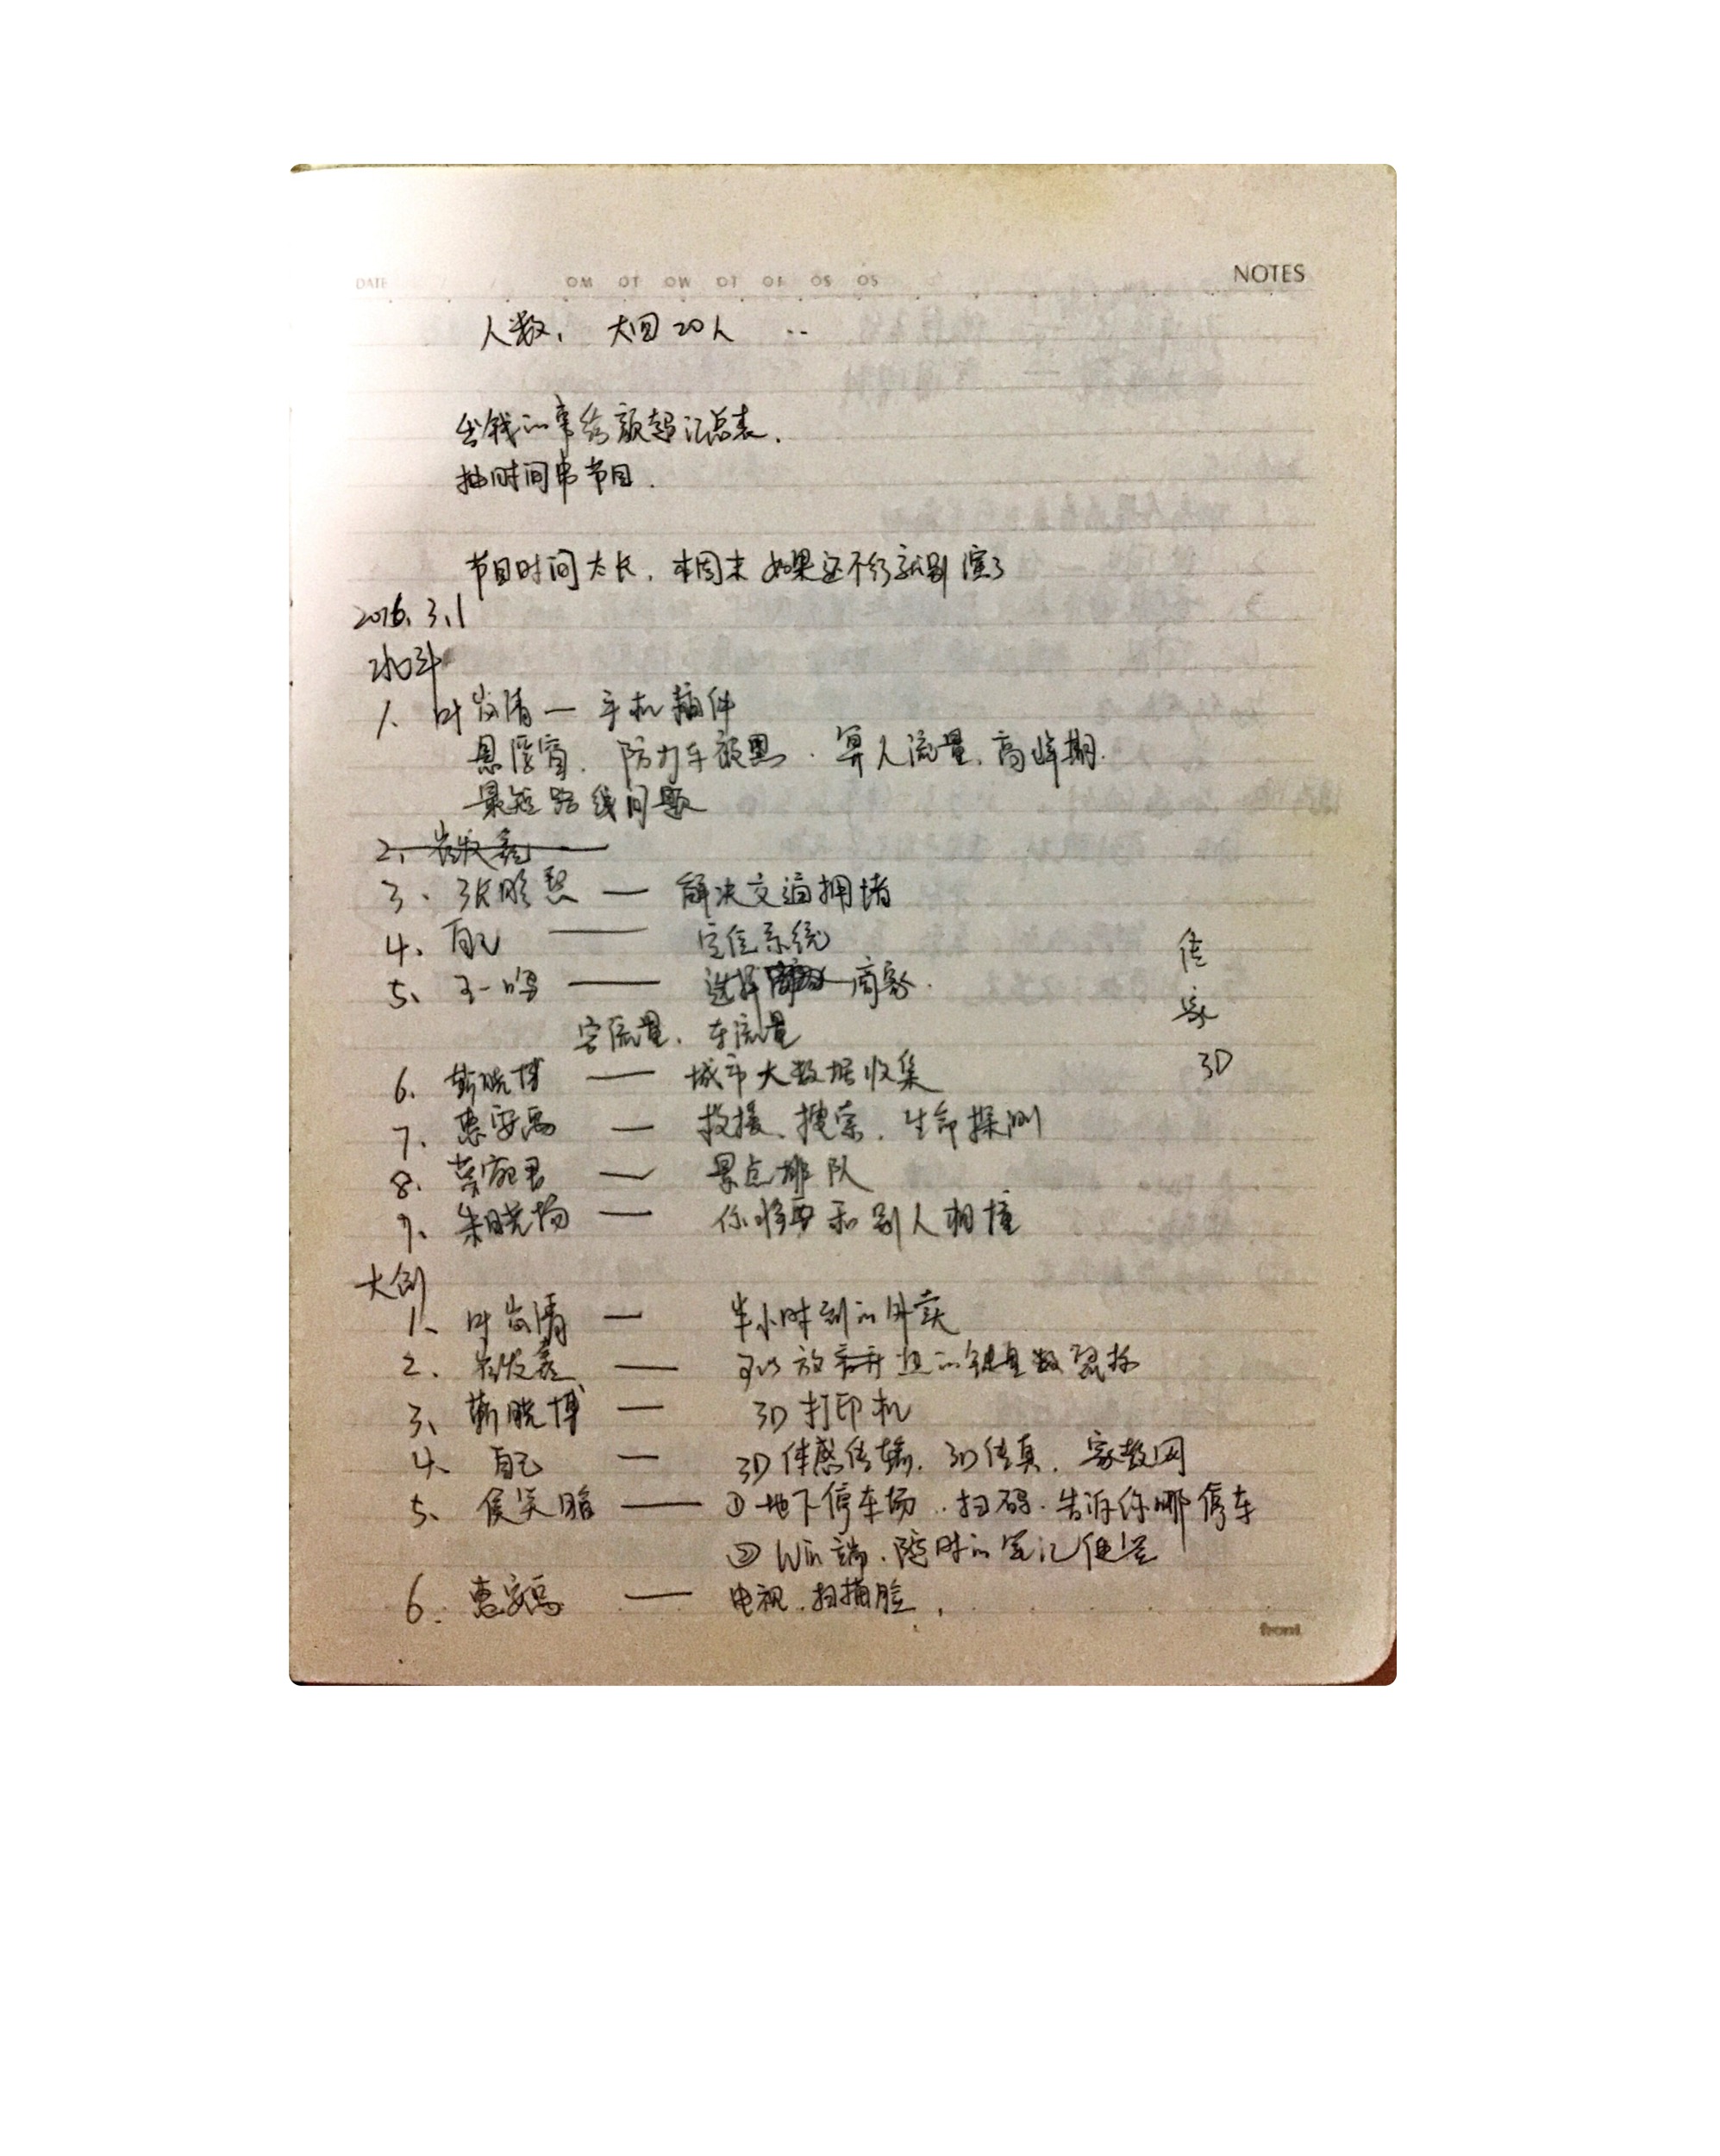 DATE
NOTES
人数, 大团20人
出钱的事给颜超汇总表.
抽时间串节目.
节目时间太长, 本周末如果还不行就别演了
2016.3.1
北斗
1、叶发清 — 手机插件
悬浮窗. 防力车被黑. 算人流量, 高峰期.
最短路线问题
3. 张 — 解决交通拥堵
4、自己 — 定位系统
5、王一鸣 — 选择 商家.
客流量. 车流量
6. 靳晓博 — 城市大数据收集
7. 惠安禹 — 救援、搜索. 生命探测
8. 君 — 景点排队
9. 朱晓扬 — 你将要和别人相撞
传
家
3D
大创
1、叶发清 — 半小时到的外卖
2. 崔发鑫 — 可以放 的键盘 鼠标
3、靳晓博 — 3D打印机
4、自己 — 3D体感传输. 3D传真. 家教网
5、侯笑 — ①地下停车场. 扫码. 告诉你哪停车
② Win端. 随时的笔记便签
6. 惠安禹 — 电视. 扫描脸.
front